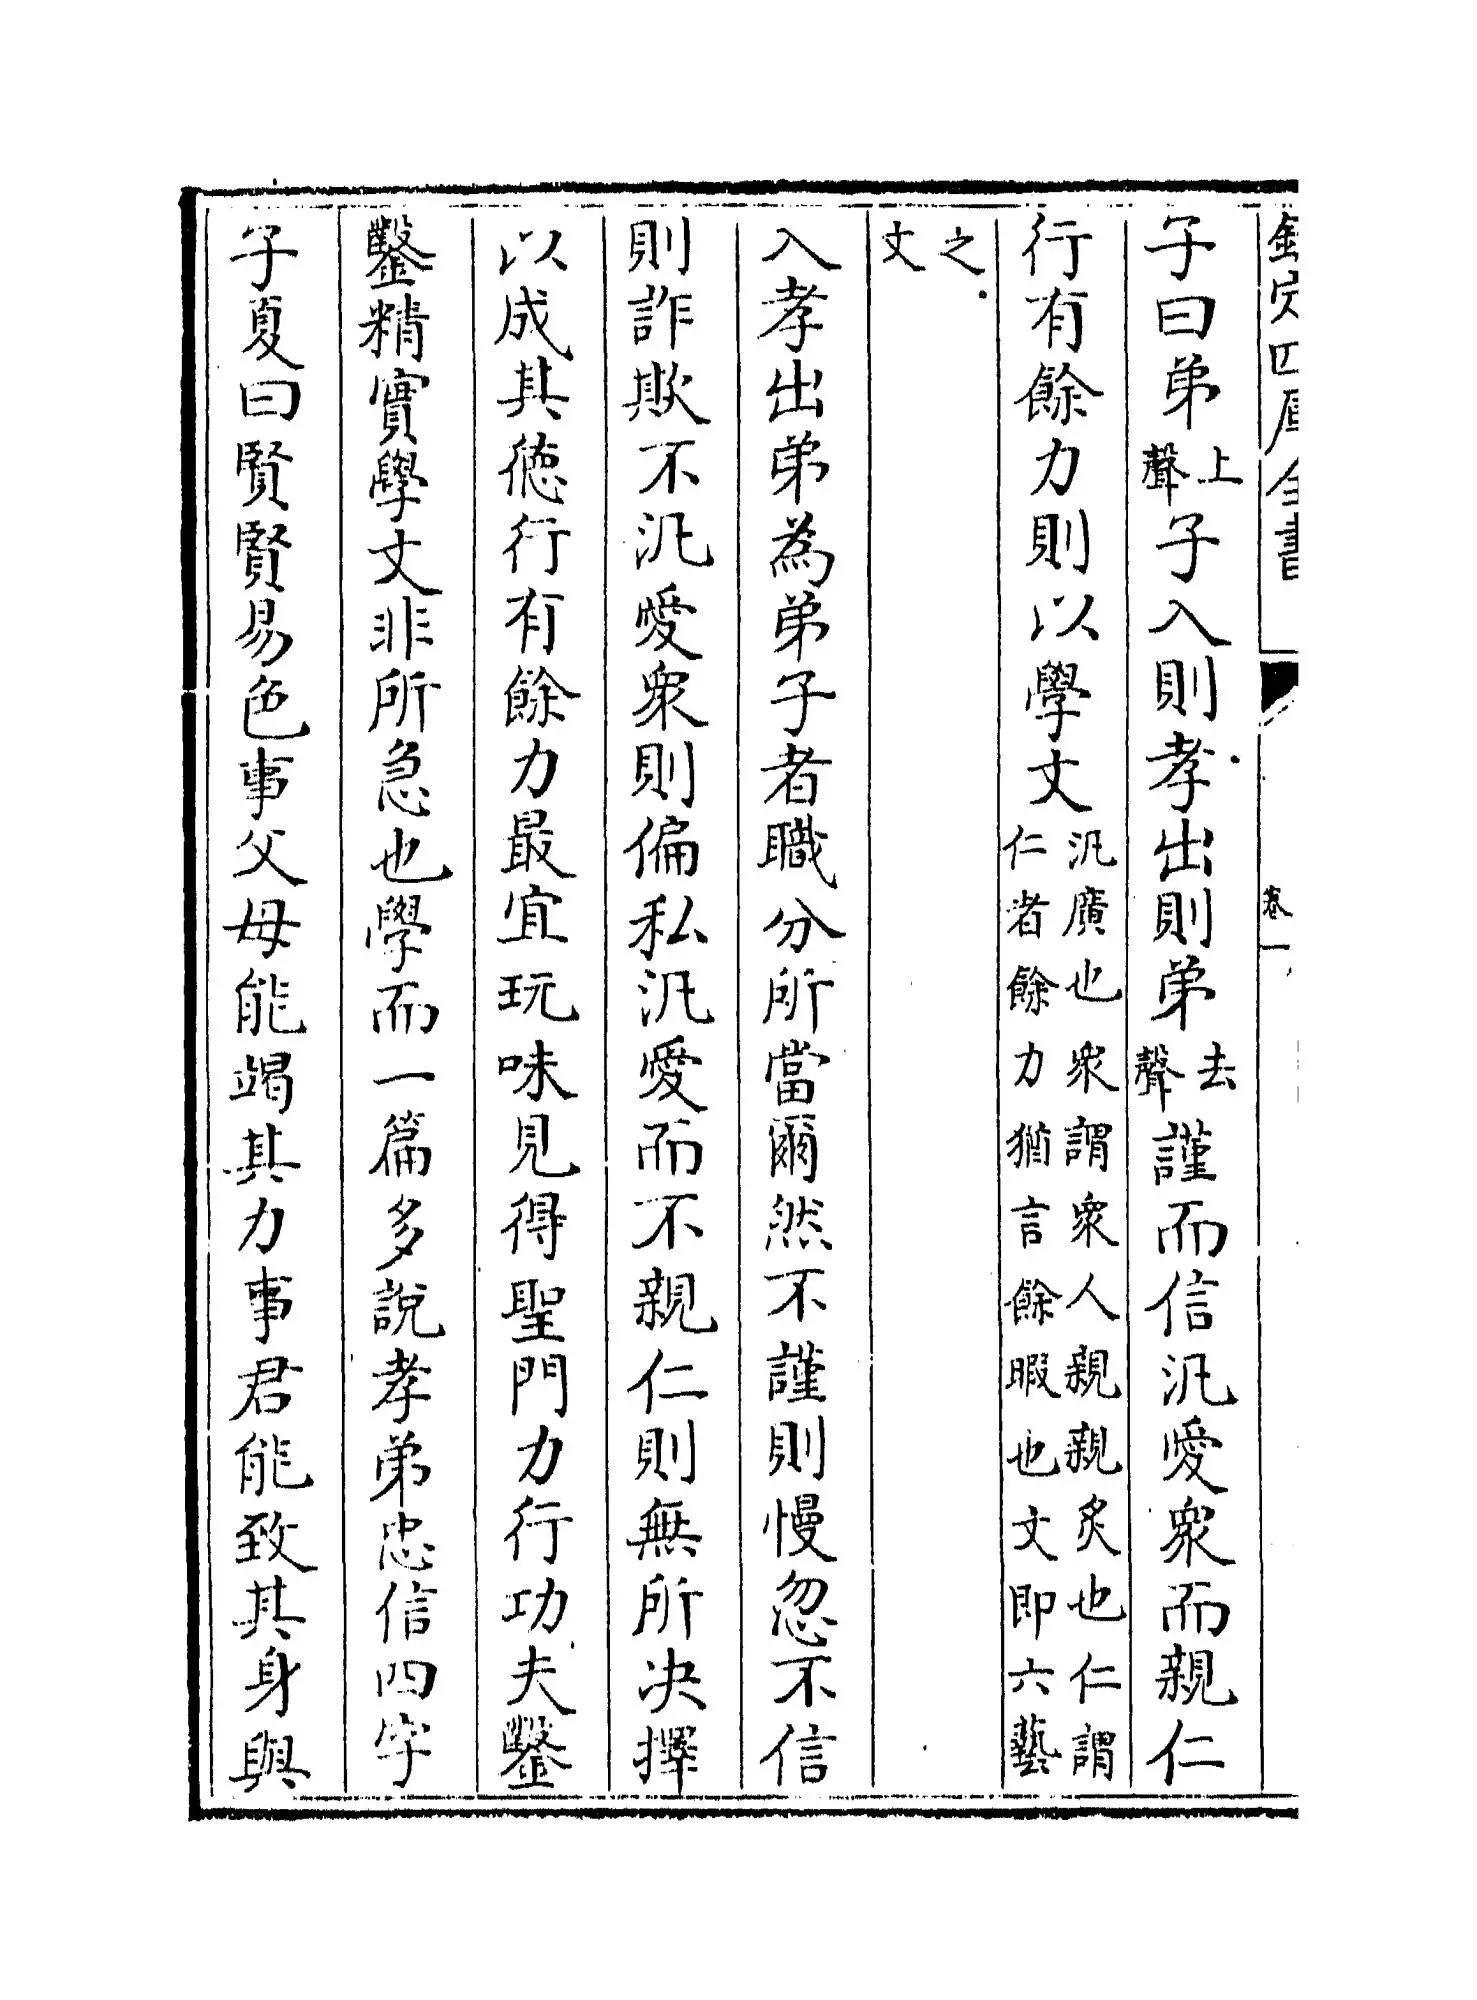 欽定四庫全書
卷一
子曰弟上聲子入則孝出則弟去聲謹而信汎愛衆而親仁
行有餘力則以學文汎廣也衆謂衆人親親炙也仁謂仁者餘力猶言餘暇也文即六藝
之文
入孝出弟為弟子者職分所當爾然不謹則慢忽不信
則詐欺不汎愛衆則偏私汎愛而不親仁則無所决擇
以成其徳行有餘力最宜玩味見得聖門力行功夫鑿
鑿精實學文非所急也學而一篇多說孝弟忠信四字
子夏曰賢賢易色事父母能竭其力事君能致其身與